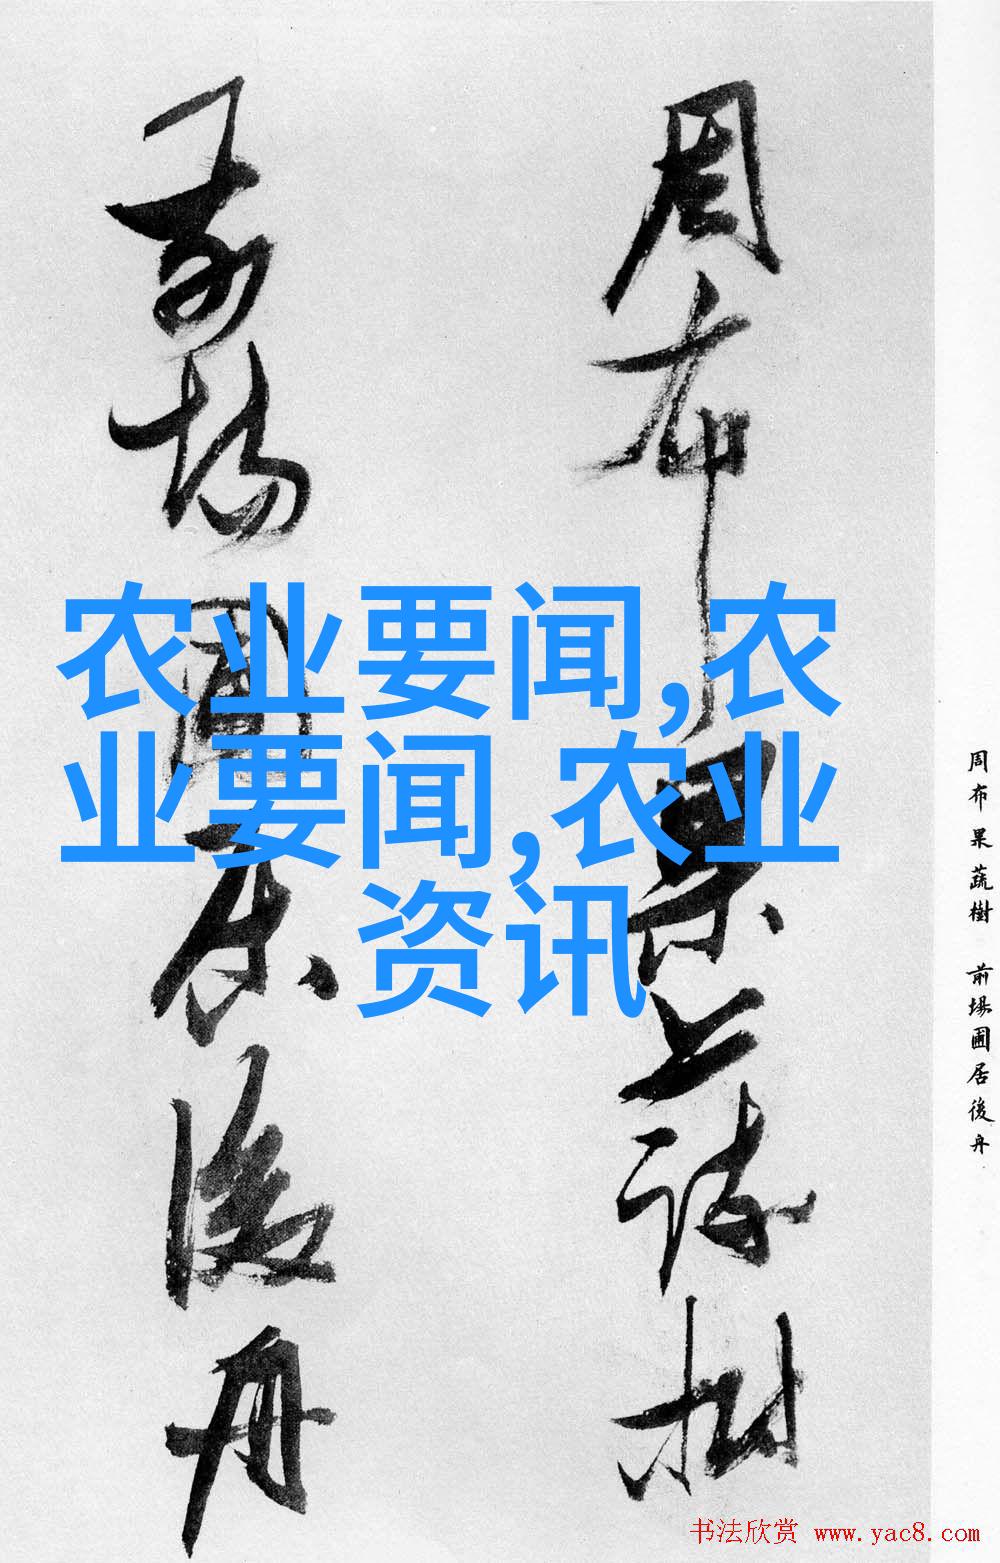 周布果蔬樹
前場圃居後舟
农业要闻,农
业要闻,农业
资讯
周布果蔬樹 前場圃居後舟
书法欣赏 www.yac8.com